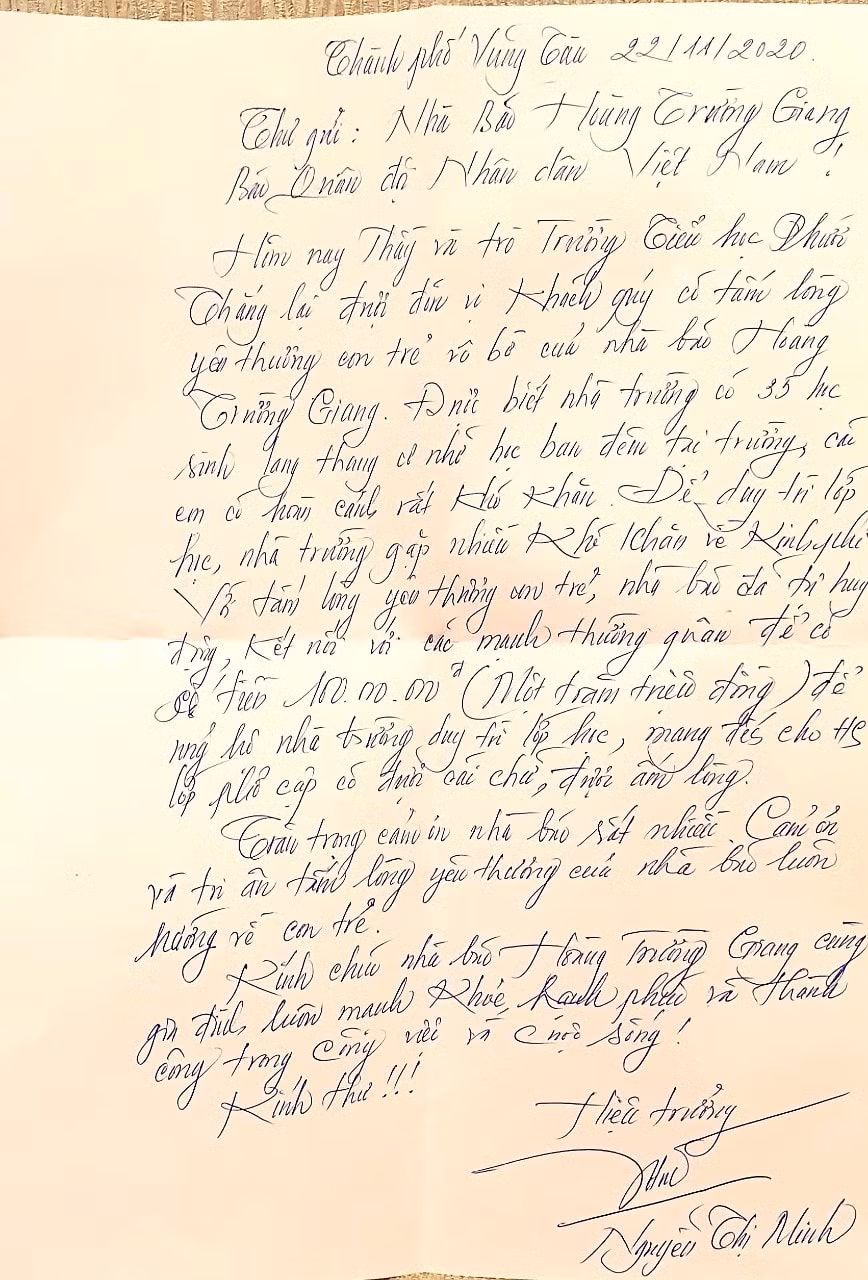 Thành phố Vũng Tàu 22/11/2020.
Thư gửi: Nhà Báo Hoàng Trường Giang
Báo Quân đội Nhân dân Việt Nam!
Hôm nay Thầy và trò Trường Tiểu học Phước
Thắng lại được đón vị khách quý có tấm lòng
yêu thương con trẻ vô bờ của nhà báo Hoàng
Trường Giang. Được biết nhà trường có 35 học
sinh lang thang cơ nhỡ học ban đêm tại trường, các
em có hoàn cảnh rất khó khăn. Để duy trì lớp
học, nhà trường gặp nhiều khó khăn về kinh phí
Với tấm lòng yêu thương con trẻ, nhà báo đã tự huy
động, kết nối với các mạnh thường quân để có
số tiền 100.00.00đ (Một trăm triệu đồng) để
ủng hộ nhà trường duy trì lớp học, mang đến cho HS
lớp phổ cập có được cái chữ, được ấm lòng.
Trân trọng cảm ơn nhà báo rất nhiều. Cảm ơn
và tri ân tấm lòng yêu thương của nhà báo luôn
hướng về con trẻ.
Kính chúc nhà báo Hoàng Trường Giang cùng
gia đình luôn mạnh khỏe, hạnh phúc và thành
công trong công việc và cuộc sống!
Kính thư!!!
Hiệu trưởng
Nguyễn Thị Minh